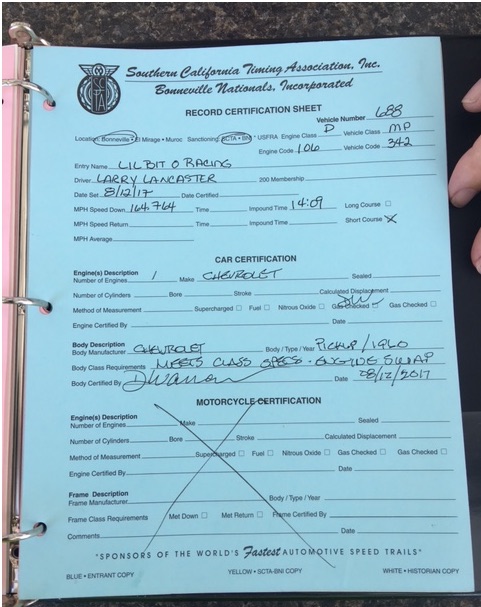 Southern California Timing Association, Inc.
Bonneville Nationals, Incorporated
SCTA
RECORD CERTIFICATION SHEET
Vehicle Number 688
Location: Bonneville • El Mirage • Muroc Sanctioning: SCTA • BNI • USFRA Engine Class D Vehicle Class MP
Engine Code 106 Vehicle Code 342
Entry Name LILBIT O RACING
Driver LARRY LANCASTER 200 Membership
Date Set 8/12/17 Date Certified
MPH Speed Down 164.764 Time Impound Time 14:09 Long Course
MPH Speed Return Time Impound Time Short Course X
MPH Average
CAR CERTIFICATION
Engine(s) Description
Number of Engines 1 Make CHEVROLET Sealed
Number of Cylinders Bore Stroke Calculated Displacement
Method of Measurement Supercharged Fuel Nitrous Oxide Gas Checked DW Gas Checked
Engine Certified By Date
Body Description
Body Manufacturer CHEVROLET Body / Type / Year PICKUP / 1960
Body Class Requirements MEETS CLASS SPECS - ENGINE SWAP
Body Certified By DWarren Date 08/12/2017
MOTORCYCLE CERTIFICATION
Engine(s) Description
Number of Engines Make Sealed
Number of Cylinders Bore Stroke Calculated Displacement
Method of Measurement Supercharged Fuel Nitrous Oxide Gas Checked Gas Checked
Engine Certified By Date
Frame Description
Frame Manufacturer Body / Type / Year
Frame Class Requirements Met Down Met Return Frame Certified By
Comments Date
"SPONSORS OF THE WORLD'S Fastest AUTOMOTIVE SPEED TRAILS"
BLUE • ENTRANT COPY YELLOW • SCTA-BNI COPY WHITE • HISTORIAN COPY